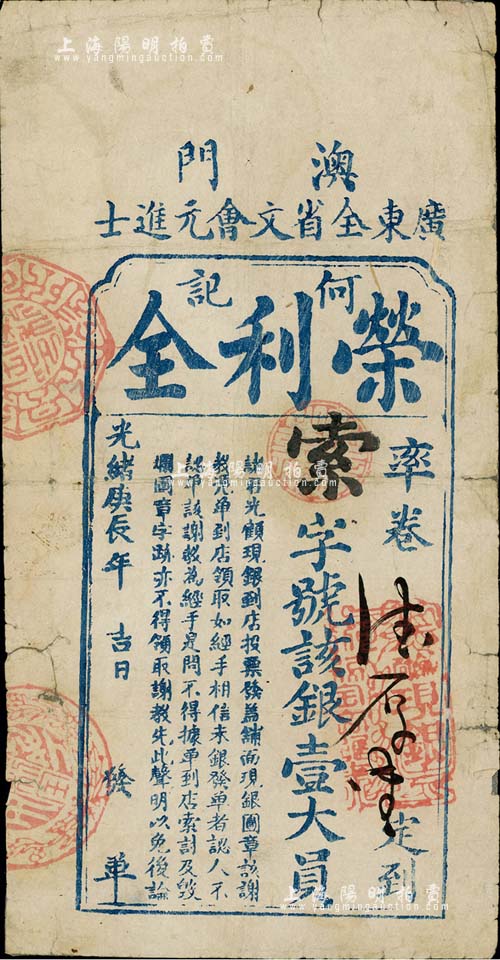 上海陽明拍賣
www.yangmingauction.com
澳門
廣東全省文會元進士
何記
榮利全
率卷
定到
索字號該銀壹大員
諸君光顧現銀到店投票發蓋鋪面現銀圖章該謝
教凴單到店領取如經手相信未銀發單者認人不
認單該謝教為經手是問不得據單到店索討及毀
爛圖章字跡亦不得領取謝教先此聲明以免後論
光緒庚辰年 吉日 發單
上海陽明拍賣
www.yangmingauction.com
上海陽明拍賣
www.yangmingauction.com